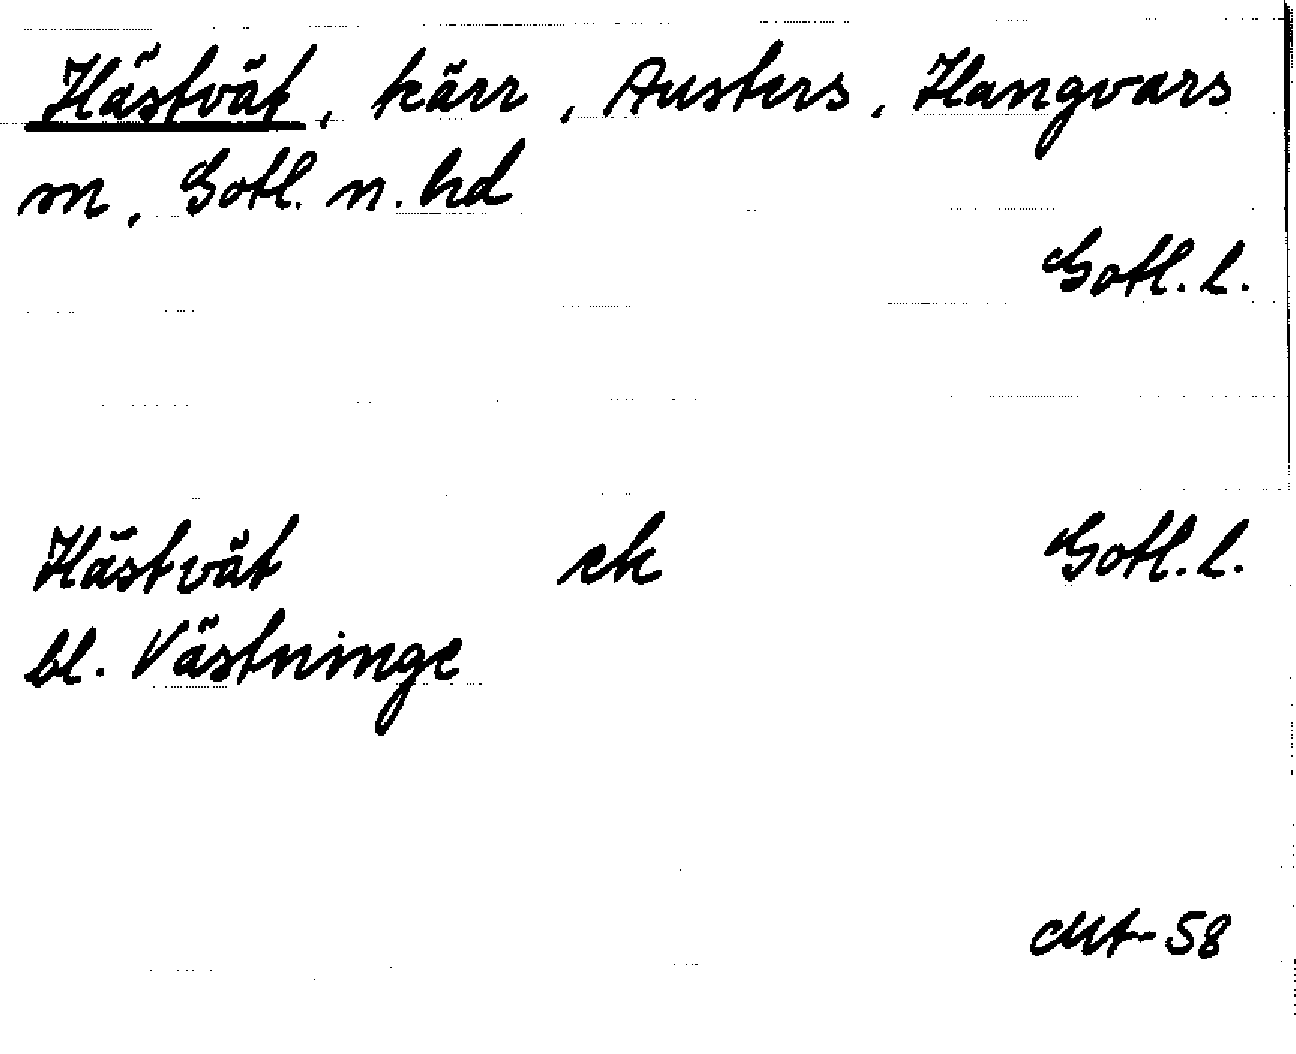 Hästvät, kärr, Austers, Hangvars
m, Gotl. n. hd
Gotl. l.
Hästvät ek Gotl. l.
bl. Västninge
Mt-58